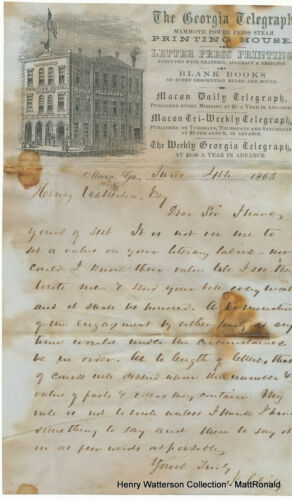 The Georgia Telegraph
MAMMOTH POWER PRESS STEAM
PRINTING HOUSE.
LETTER PRESS PRINTING
EXECUTED WITH NEATNESS, ACCURACY & DESPATCH
BLANK BOOKS
OF EVERY DESCRIPTION RULED AND BOUND.
Macon Daily Telegraph,
PUBLISHED EVERY MORNING AT $6 A YEAR IN ADVANCE
Macon Tri-Weekly Telegraph,
PUBLISHED ON TUESDAYS, THURSDAYS AND SATURDAYS
IN ADVANCE.
The Weekly Georgia Telegraph,
A YEAR IN ADVANCE.
Macon, Ga. June 4th 1863
Henry Watterson, Esq
Dear Sir I have
yours of It is not in me to
set a value on your literary labors nor
could I know their value till I see them
Write me & send your bill every week
and it shall be honored. A termination
of the engagement by either party at any
time would under the circumstances
be in order. As to length of letters, that
of course will depend upon the number &
value of facts & ideas they contain. My
rule is not to write unless I think I have
something to say and then to say it
in as few words as possible,
Yours truly
Henry Watterson Collection - MattRonald